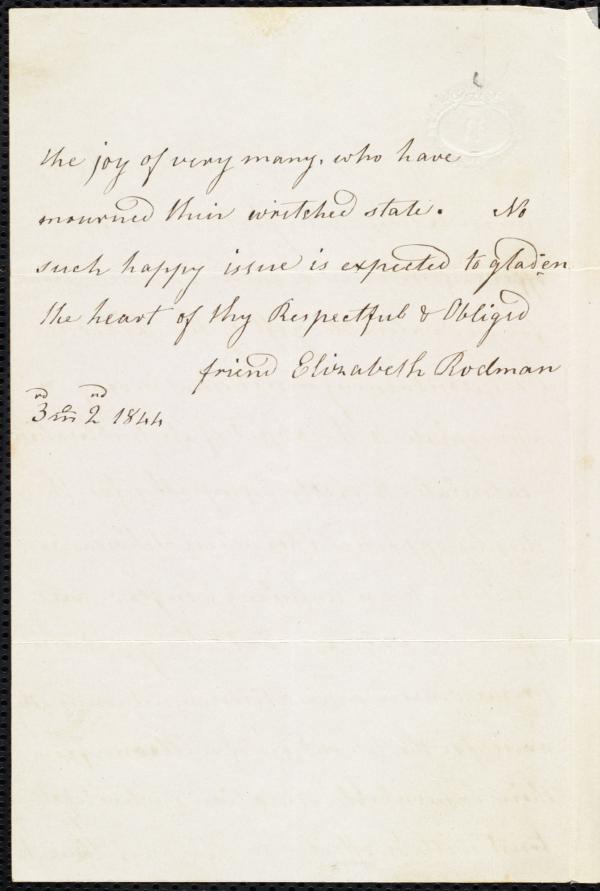 the joy of very many, who have
mourned their wretched state. No
such happy issue is expected to gladen
the heart of thy Respectful & Obliged
friend Elizabeth Rodman
3rd m 2nd 1844